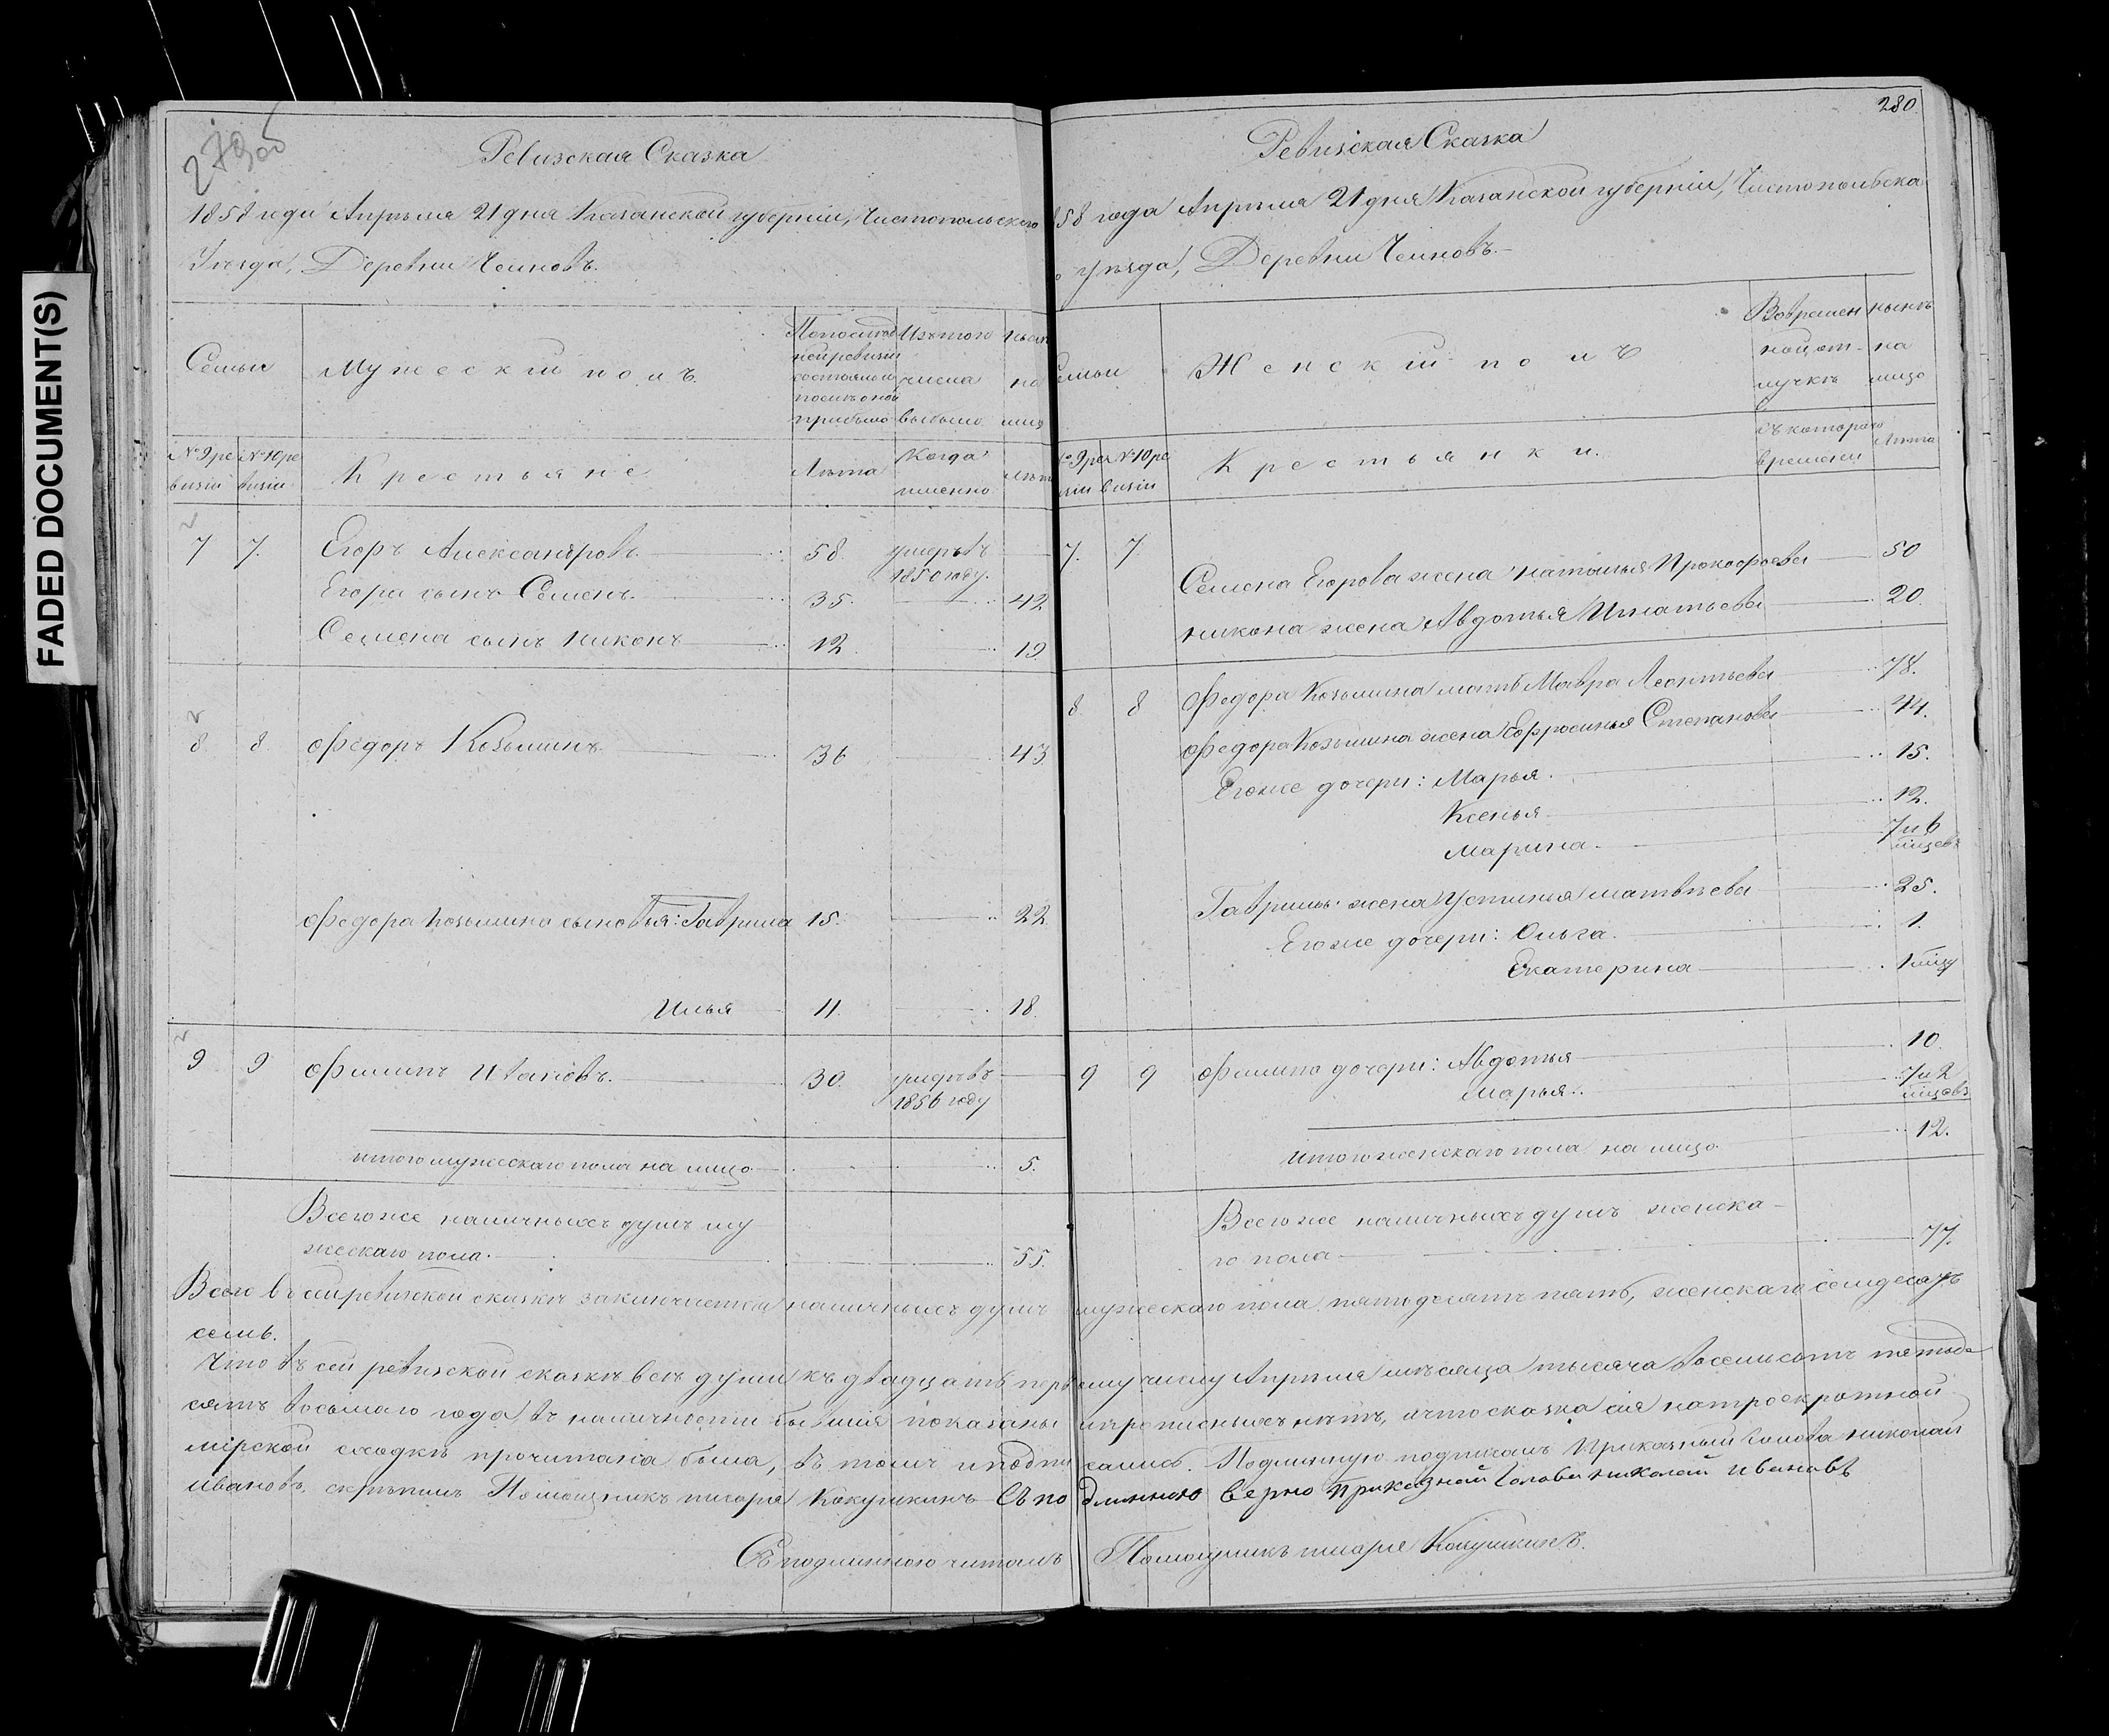 FADED DOCUMENT(S)
279об
Ревизская Сказка
1858 года Апрѣля 21 дня Казанской губерніи, Чистопольскаго
Уѣзда, Деревни
Семьи
Мужескій полъ.
По послѣд
ней ревизіи
состояло и
послѣ оной
прибыло
Изъ того
числа
выбыло
Нынѣ
на
лицо
№ 9 ре
визіи
№ 10 ре
визіи
Крестьяне
Лѣта
Когда
именно
Лѣта
7 7. Егоръ Александровъ 58. умеръ въ
1850 году.
Егора сынъ Семенъ 35. 42
Семена сынъ Никонъ 12. 19
8 8. Федоръ Козьминъ 36 43
Федора Козьмина сыновья: Гаврила 15. 22.
Илья 11. 18.
9 9 Филипъ Ивановъ. 30. умеръ въ
1856 году
итого мужескаго пола на лицо 5.
Всего же наличныхъ душъ му
жескаго пола. 55.
280
Ревизская Сказка
858 года Апрѣля 21 дня Казанской губерніи, Чистопольска
о уѣзда, Деревни
емьи
Женскій полъ
Во времен
ной от-
лучкѣ
нынѣ
на
лицо
№ 9 рев
изіи
№ 10 ре
визіи
Крестьянки.
съ котораго
времени
Лѣта
7. 7.
Семена Егорова жена Наталья Прокофьева 50
Никона жена Авдотья Игнатьева 20.
8 8 Федора Козьмина мать Мавра Леонтьева 78.
Федора Козьмина жена Ефросинья Степанова 44.
Его же дочери: Марья. 15.
Ксенья 12.
Марина. 7 и 6
мцевъ
Гаврилы жена Устинья Матвѣева 25.
Его же дочери: Ольга. 1.
Екатерина 1 мцу
9 9 Филипа дочери: Авдотья 10.
Марья. 7 и 2
мцевъ
итого женскаго пола на лицо 12.
Всего же наличныхъ душъ женска-
го пола 77.
Всего въ сей ревизской сказкѣ заключается наличныхъ душъ мужескаго пола пятьдесятъ пять, женскаго семдесятъ
семь.
Что въ сей ревизской сказкѣ всѣ души къ двадцать первому числу Апрѣля мѣсяца тысяча восемьсотъ пятьде
сятъ восьмаго года въ наличности бывшія показаны и прописныхъ нѣтъ, и что сказка сія на троекратной
мірской сходкѣ прочитана была, въ томъ и подписались. Подлинную подписалъ Приказный Голова Николай
Ивановъ, скрѣпилъ Помощникъ писаря Кокушкинъ Съ подлинною верно Приказной Голова Николай Ивановъ
Съ подлинною читалъ Помощникъ писаря Кокушкинъ.